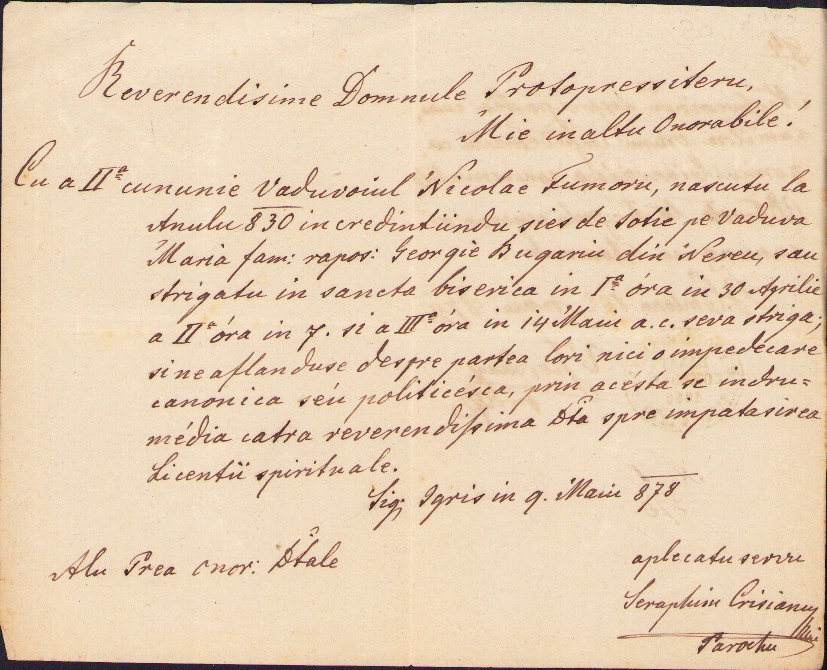 Reverendisime Domnule Protopressiteru,
Mie inaltu Onorabile!
Cu a IIª cununie Vaduvoiul Nicolae Fumoru, nascutu la
Anulu 830 incredintiindu sies de sotie pe Vaduva
Maria fam: rapos: Georgie Bugariu din Nereu, sau
strigatu in sancta biserica in Iª óra in 30 Aprilie
a IIª óra in 7. si a IIIª óra in 14 Maiu a.c. seva striga;
si ne aflanduse despre partea lori nici o impedecare
canonica séu politicésca, prin acésta se indru=
média catra reverendissima Dta spre impatasirea
Licentii spirituale.
Sig. Igris in 9. Maiu 878
Alu Prea onor: Dtale
aplecatu servu
Seraphim Crisianu
Parochu